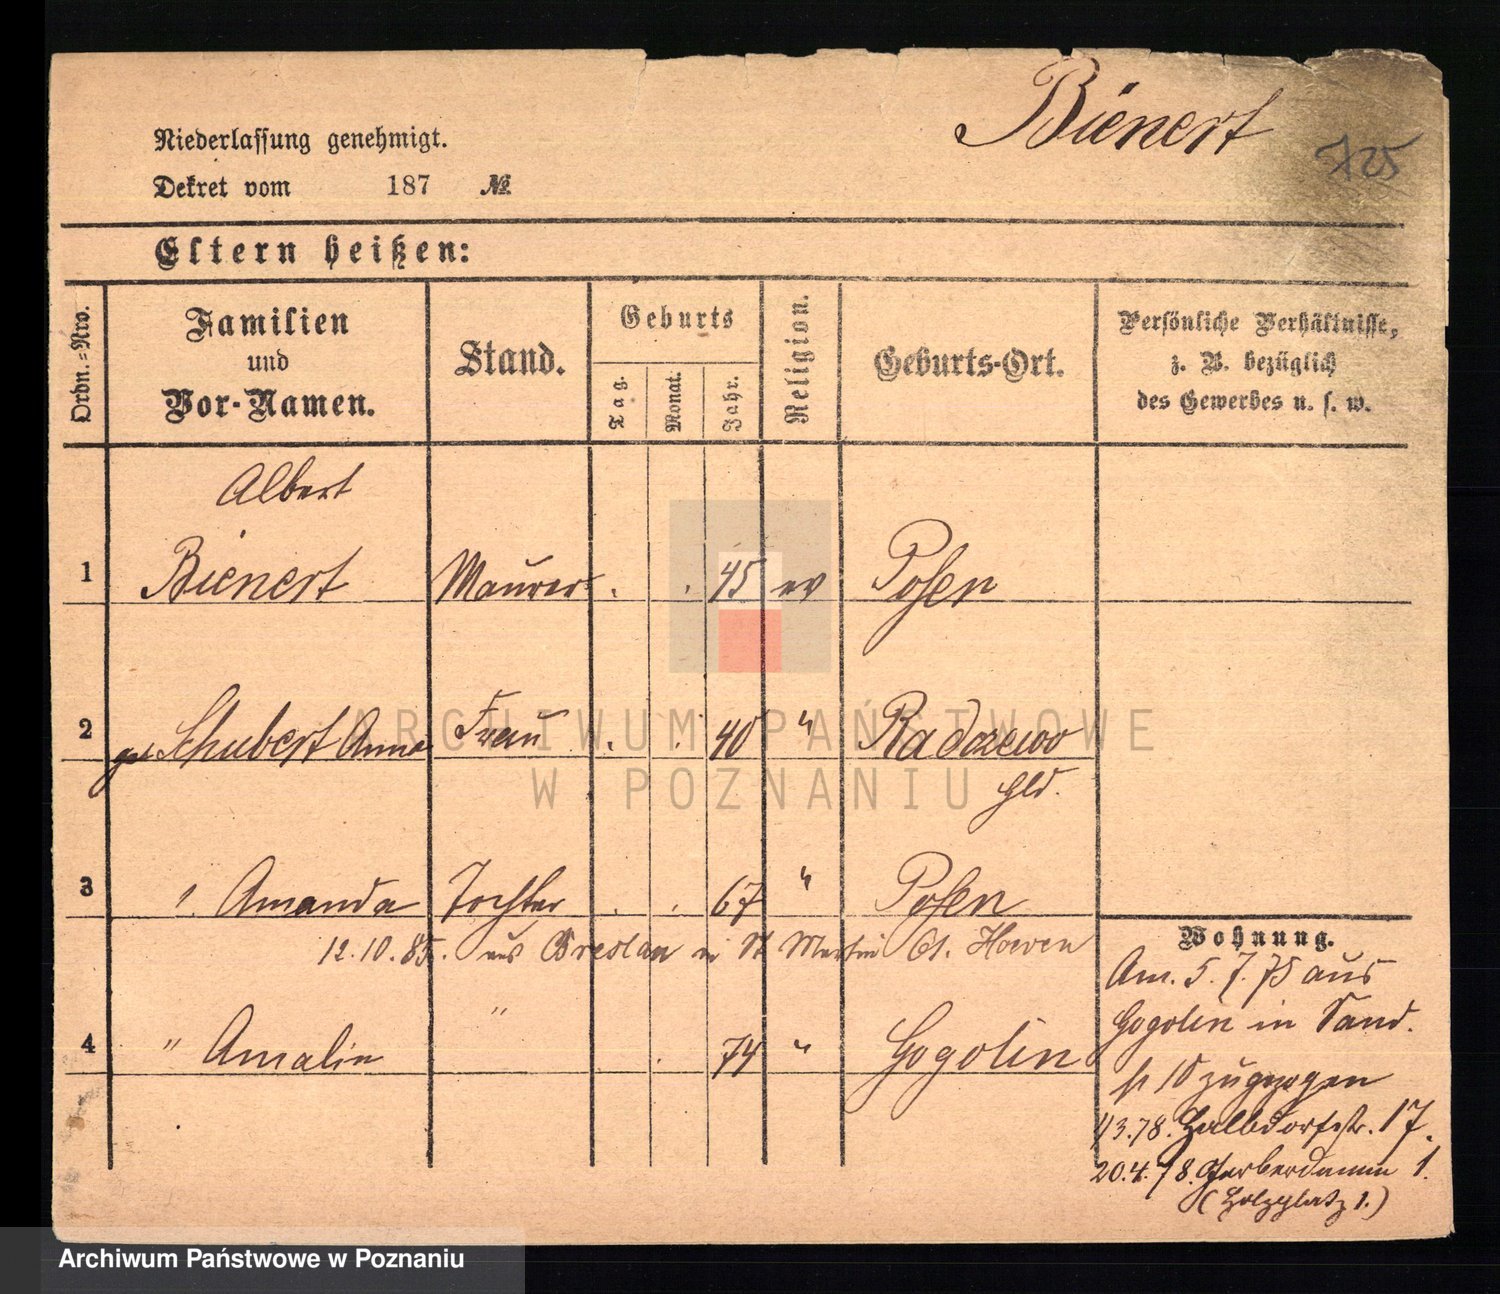 Bienert
725
Niederlassung genehmigt.
Dekret vom 187 №
Eltern heißen:
Ordn.=Nro.
Familien
und
Vor-Namen.
Stand.
Geburts
Tag.
Monat.
Jahr.
Religion.
Geburts-Ort.
Persönliche Verhältnisse,
z. B. bezüglich
des Gewerbes u. s. w.
Albert
1 Bienert Maurer . . 45 ev Posen
2 Schubert Anna Frau . . 40 " Radzewo
3 Amanda Tochter . . 67 " Posen
12.10.85. aus Breslau in St Martin 61.
4 " Amalie " . 74 " Gogolin
Wohnung.
Am. 5. 7. 75 aus
Gogolin in Sand.
10 zugezogen
1/3.78. Halbdorfstr. 17.
20.4.78. Gerberdamm 1.
(Holzplatz 1.)
ARCHIWUM PAŃSTWOWE
W POZNANIU
Archiwum Państwowe w Poznaniu